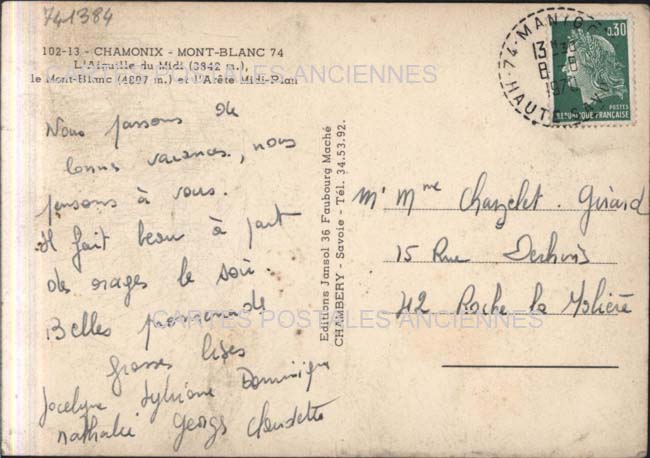 741384
102-13 - CHAMONIX - MONT-BLANC 74
L'Aiguille du Midi (3842 m.),
le Mont-Blanc (4807 m.) et l'Arête Midi-Plan
Nous passons de
bonnes vacances, nous
pensons à vous.
Il fait beau à part
des orages le soir.
Belles promenade
Grosses bises
Jocelyne Sylviane Dominique
Nathalie Georges Claudette
Editions Jansol 36 Faubourg Maché
CHAMBERY - Savoie - Tél. 34.53.92.
74-MANIGOD
13H
8-8
197
HAUTE-SAVOIE
0,30
POSTES
REPUBLIQUE FRANÇAISE
Mr Mme Chazelet. Girard
15 Rue
42 Roche la Molière
CARTES POSTALES ANCIENNES
CARTES POSTALES ANCIENNES